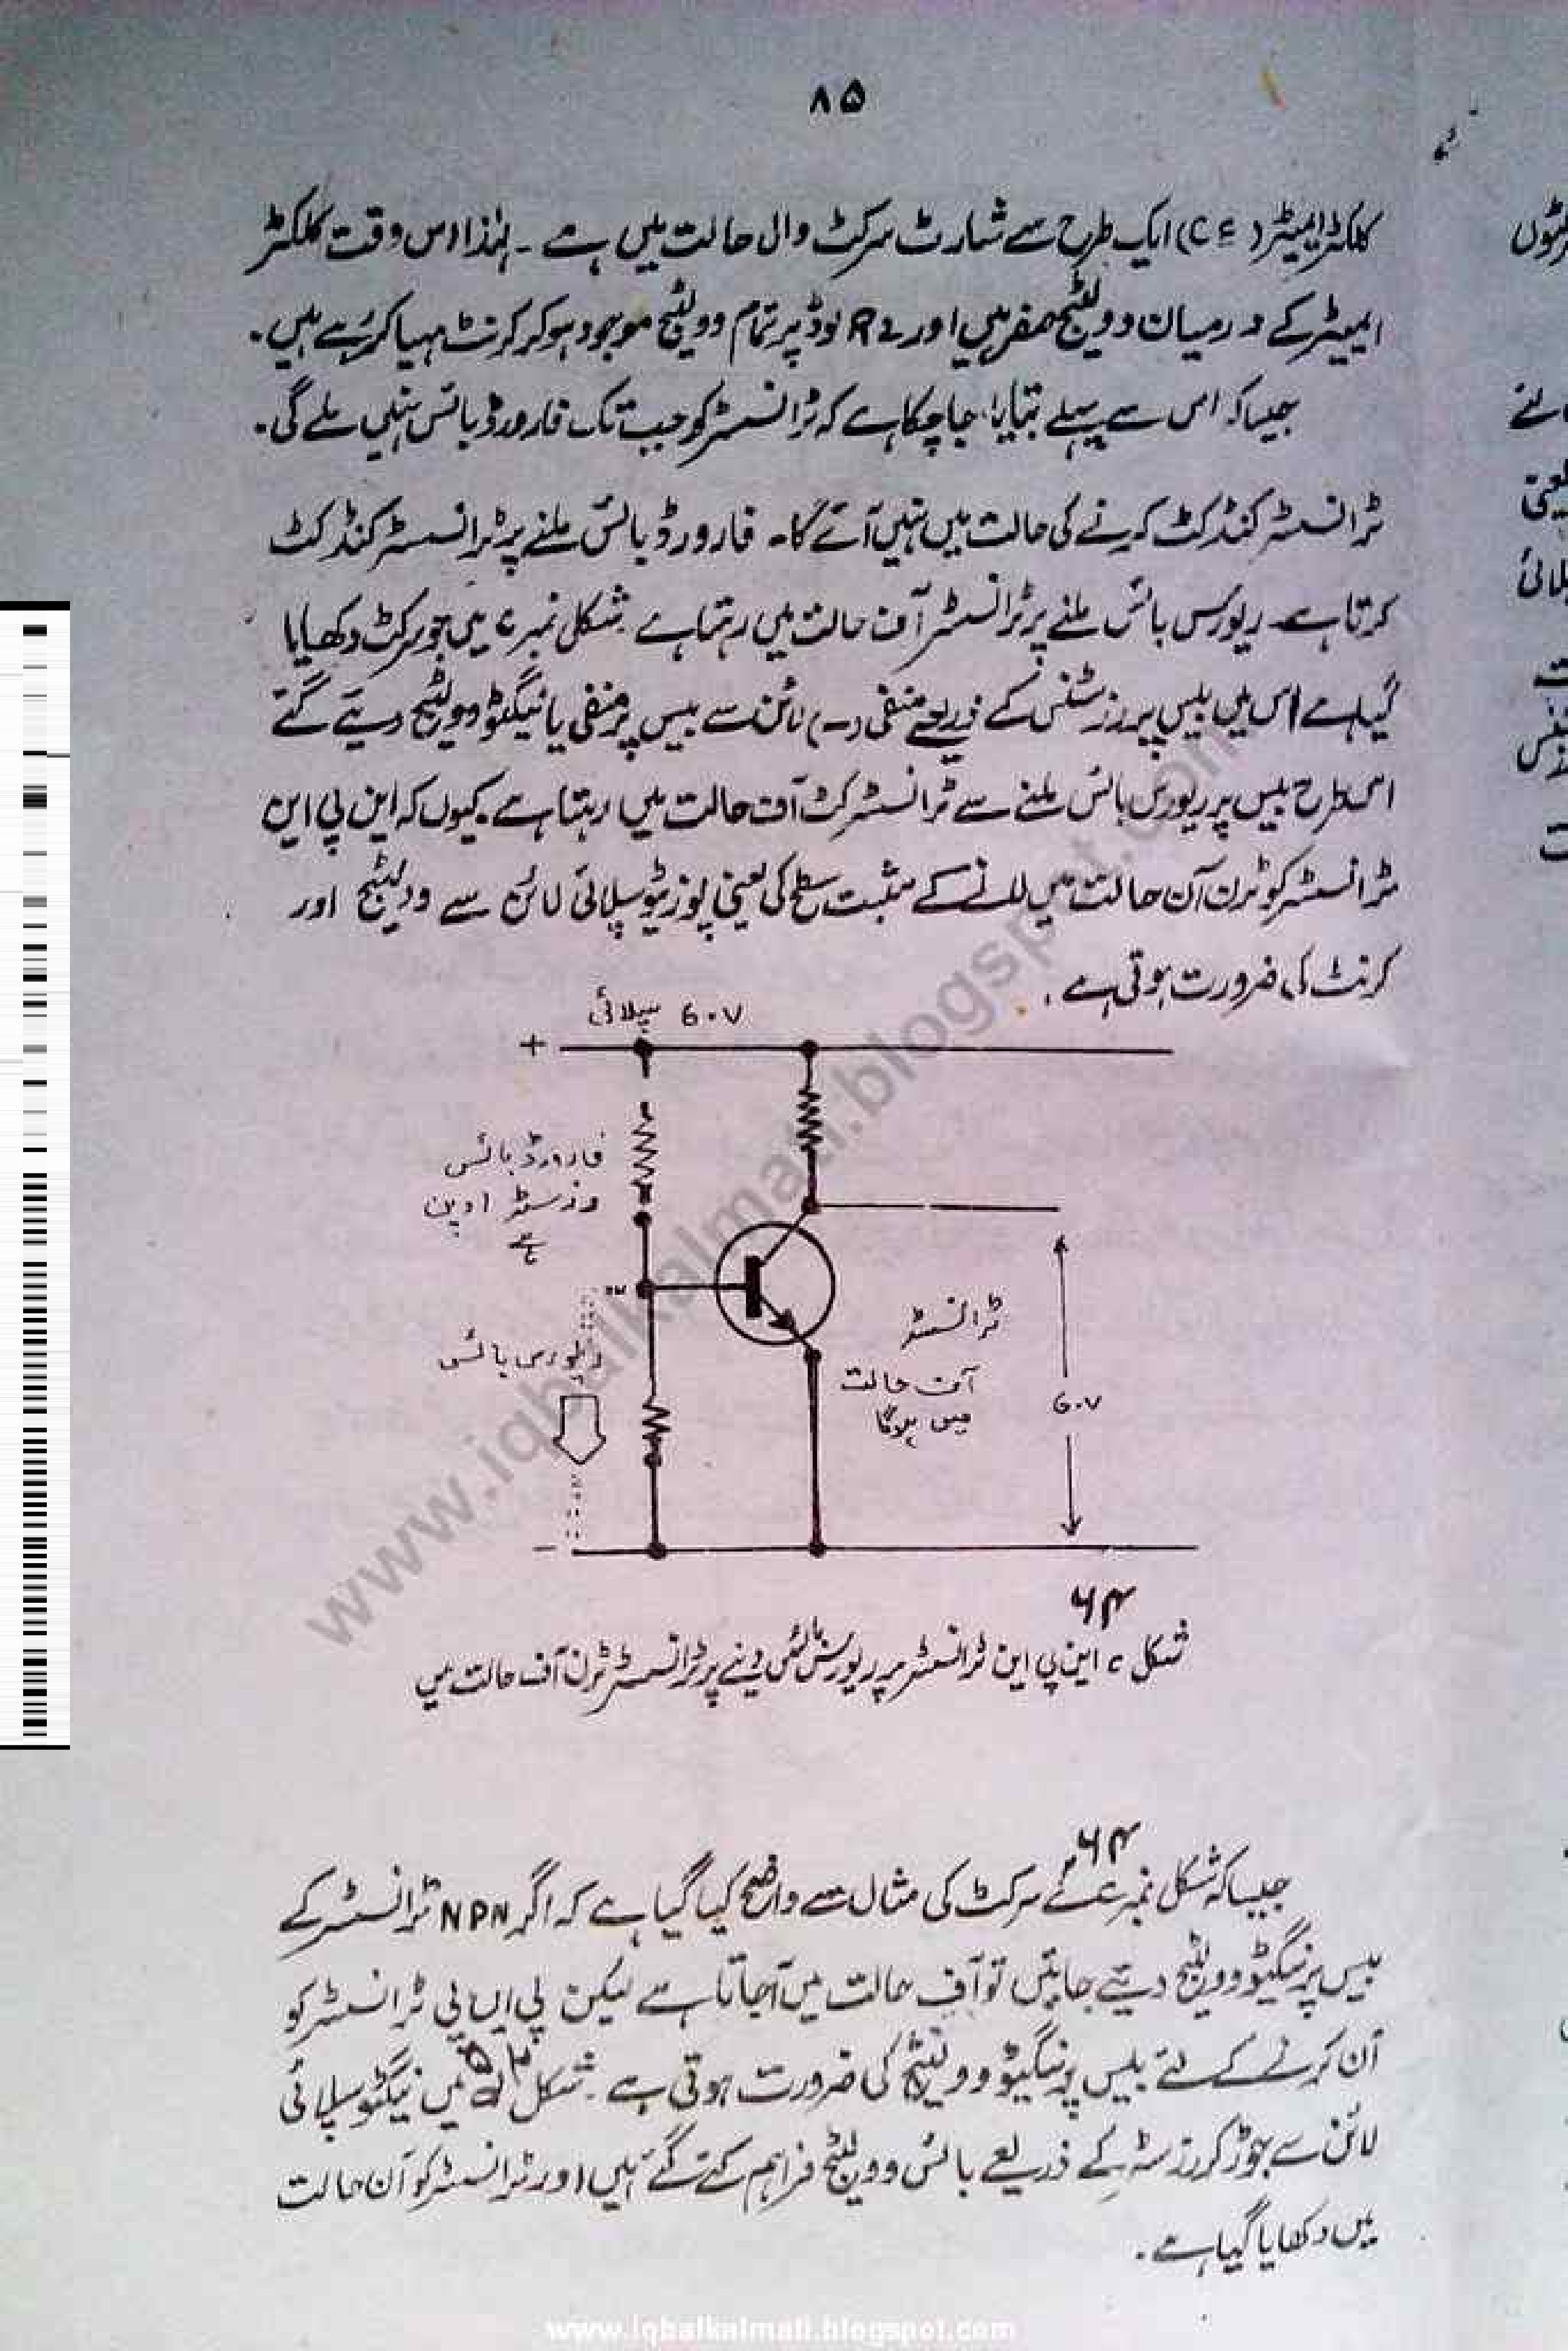 ۸۵
کلکٹر ایمیٹر (CE) ایک طرح سے شارٹ سرکٹ والی حالت میں ہے ۔ لہٰذا اس وقت کلکٹر
ایمیٹر کے درمیان وولٹیج صفر ہیں اور لوڈ پر تمام وولٹیج موجود ہو کر کرنٹ مہیا کر رہے ہیں ۔
جیسا کہ اس سے پہلے بتایا جا چکا ہے کہ ٹرانسسٹر کو جب تک فارورڈ بائس نہیں ملے گی ۔
ٹرانسسٹر کنڈکٹ کرنے کی حالت میں نہیں آئے گا ۔ فارورڈ بائس ملنے پر ٹرانسسٹر کنڈکٹ
کرتا ہے ۔ ریورس بائس ملنے پر ٹرانسسٹر آف حالت میں رہتا ہے ۔ شکل نمبر میں جو سرکٹ دکھایا
گیا ہے اس میں بیس پر رزسٹنس کے ذریعے منفی (-) لائن سے بیس پر منفی یا نیگیٹو وولٹیج دیئے گئے
اس طرح بیس پر ریورس بائس ملنے سے ٹرانسسٹر کٹ آف حالت میں رہتا ہے ۔ کیوں کہ این پی این
ٹرانسسٹر کو ٹرن آن حالت میں لانے کے مثبت سطح کی یعنی پوزیٹو سپلائی لائن سے وولٹیج اور
کرنٹ کی ضرورت ہوتی ہے ۔
60V سپلائی
+
فارورڈ بائس
رزسٹر اوپن
ہے
ریورس بائس
ٹرانسسٹر
آف حالت
میں ہوگا
60V
-
شکل این پی این ٹرانسسٹر پر ریورس بائس دینے پر ٹرانسسٹر ٹرن آف حالت میں
جیسا کہ شکل نمبر کے سرکٹ کی مثال سے واضح کیا گیا ہے کہ اگر NPN ٹرانسسٹر کے
بیس پر نیگیٹو وولٹیج دیئے جائیں تو آف حالت میں آجاتا ہے لیکن پی این پی ٹرانسسٹر کو
آن کرنے کے لئے بیس پر نیگیٹو وولٹیج کی ضرورت ہوتی ہے ۔ شکل میں نیگیٹو سپلائی
لائن سے جوڑ کر رزسٹر کے ذریعے بائس وولٹیج فراہم کئے گئے ہیں اور ٹرانسسٹر کو آن حالت
میں دکھایا گیا ہے ۔
www.iqbalkalmati.blogspot.com
www.iqbalkalmati.blogspot.com